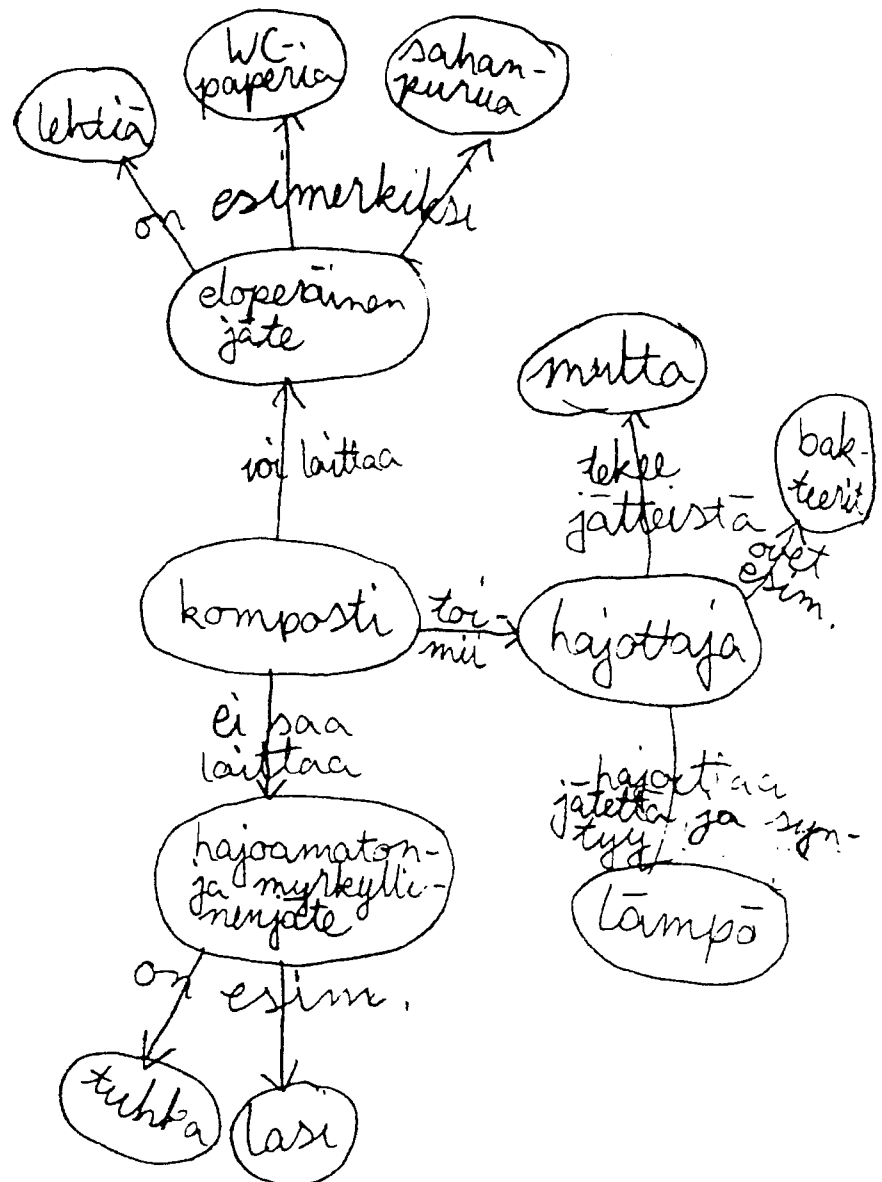 WC-
paperia
sahan-
purua
lehtiä
on esimerkiksi
eloperäinen
jäte
voi laittaa
komposti
toi-
mii
hajottaja
tekee
jätteistä
multa
ovat
esim.
bak-
teerit
hajottaa
jätettä ja syn-
tyy
lämpö
ei saa
laittaa
hajoamaton-
ja myrkylli-
nenjäte
on esim.
tuhka
lasi